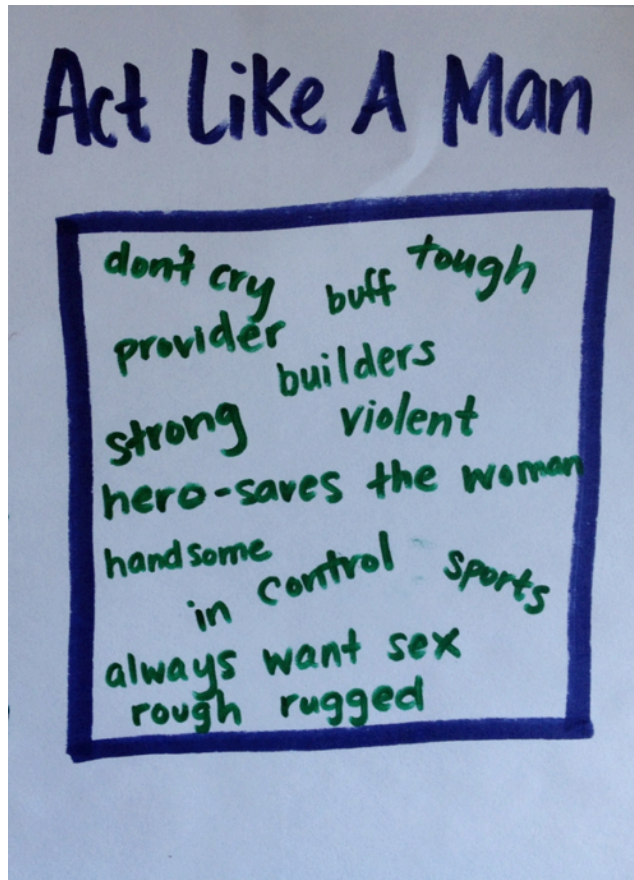 Act Like A Man
don't cry buff tough
provider
builders
strong violent
hero-saves the woman
handsome
in control sports
always want sex
rough rugged